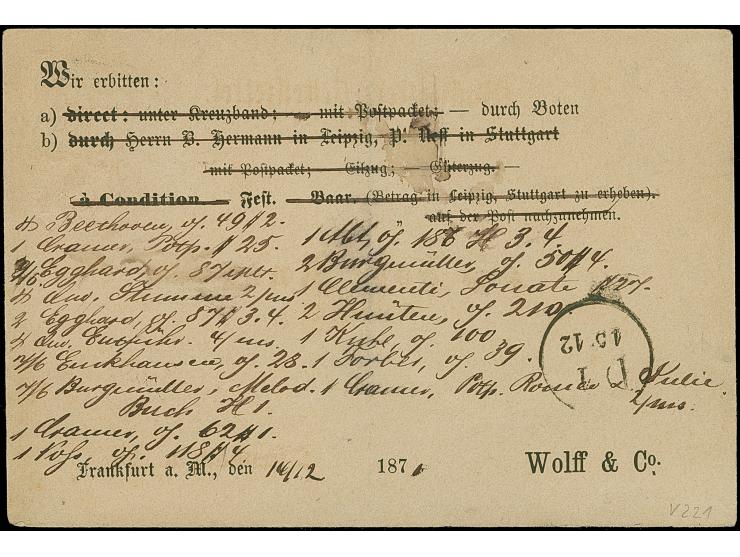 Wir erbitten:
a) direct: unter Kreuzband; — mit Postpacket; — durch Boten
b) durch Herrn B. Hermann in Leipzig, P. Neff in Stuttgart
mit Postpacket; Eilzug; — Güterzug. —
à Condition — Fest. — Baar. (Betrag in Leipzig, Stuttgart zu erheben).
auf der Post nachzunehmen.
4 Beethoven, op. 49 # 2.
1 Cramer, Potp. # 25 1 Abt, op. 186 H 3. 4.
7/6 Egghard, op. 87 2 Burgmüller, op. 50 # 4.
4 Stumme 2/ms 1 Clementi, Sonate # 27.
2 Egghard, op. 87 # 3. 4. 2 Hünten, op. 210
4 Entführ. 4/ms. 1 Kuhe, op. 100
7/6 Enckhausen, op. 28. 1 Forbes, op. 39.
7/6 Burgmüller, Melod. 1 Cramer, Potp. Romeo Julie
Buch H 1. 2/ms.
1 Cramer, op. 62 # 1.
1 Voss, op. 118 # 4
Frankfurt a. M., den 14/12 187 Wolff & Co.
15 12
V221